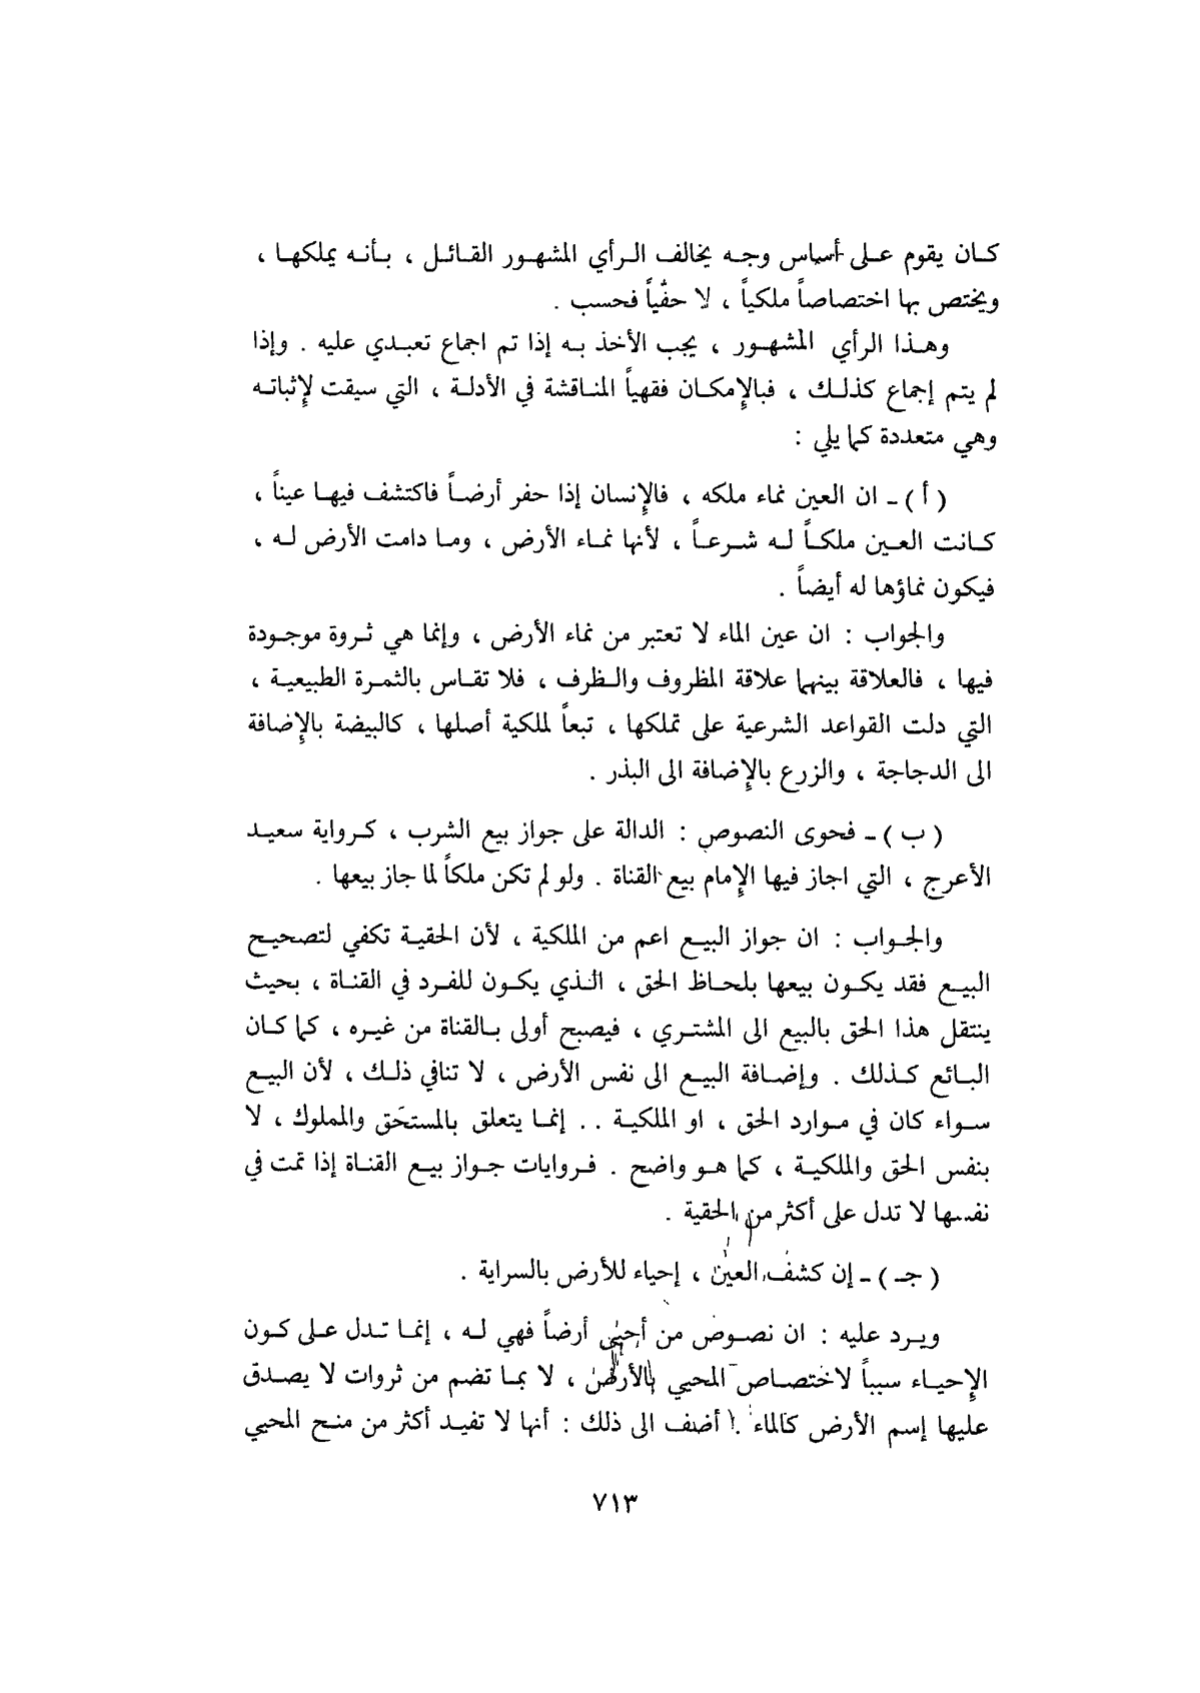 كان يقوم على أساس وجه يخالف الرأي المشهور القائل ، بأنه يملكها ،
ويختص بها اختصاصاً ملكياً ، لا حقّياً فحسب .
وهذا الرأي المشهور ، يجب الأخذ به إذا تم اجماع تعبدي عليه . وإذا
لم يتم إجماع كذلك ، فبالإمكان فقهياً المناقشة في الأدلة ، التي سيقت لإثباته
وهي متعددة كما يلي :
( أ ) ـ ان العين نماء ملكه ، فالإنسان إذا حفر أرضاً فاكتشف فيها عيناً ،
كانت العين ملكاً له شرعاً ، لأنها نماء الأرض ، وما دامت الأرض له ،
فيكون نماؤها له أيضاً .
والجواب : ان عين الماء لا تعتبر من نماء الأرض ، وإنما هي ثروة موجودة
فيها ، فالعلاقة بينهما علاقة المظروف والظرف ، فلا تقاس بالثمرة الطبيعية ،
التي دلت القواعد الشرعية على تملكها ، تبعاً لملكية أصلها ، كالبيضة بالإضافة
الى الدجاجة ، والزرع بالإضافة الى البذر .
( ب ) ـ فحوى النصوص : الدالة على جواز بيع الشرب ، كرواية سعيد
الأعرج ، التي اجاز فيها الإمام بيع القناة . ولو لم تكن ملكاً لما جاز بيعها .
والجواب : ان جواز البيع اعم من الملكية ، لأن الحقية تكفي لتصحيح
البيع فقد يكون بيعها بلحاظ الحق ، الذي يكون للفرد في القناة ، بحيث
ينتقل هذا الحق بالبيع الى المشتري ، فيصبح أولى بالقناة من غيره ، كما كان
البائع كذلك . وإضافة البيع الى نفس الأرض ، لا تنافي ذلك ، لأن البيع
سواء كان في موارد الحق ، او الملكية . . إنما يتعلق بالمستحَق والمملوك ، لا
بنفس الحق والملكية ، كما هو واضح . فروايات جواز بيع القناة إذا تمت في
نفسها لا تدل على أكثر من الحقية .
( جـ ) ـ إن كشف العين ، إحياء للأرض بالسراية .
ويرد عليه : ان نصوص من أحيى أرضاً فهي له ، إنما تدل على كون
الإحياء سبباً لاختصاص المحيي بالأرض ، لا بما تضم من ثروات لا يصدق
عليها إسم الأرض كالماء . أضف الى ذلك : أنها لا تفيد أكثر من منح المحيي
٧١٣